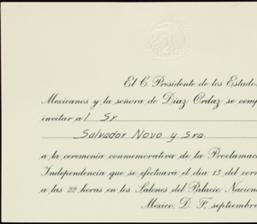 El C. Presidente de los Estados
Mexicanos y la señora de Díaz Ordaz se
invitar al Sr.
Salvador Novo y Sra.
a la ceremonia conmemorativa de la
Independencia que se efectuará el día 15 del
a las 22 horas en los Salones del Palacio
México, D. F., septiembre